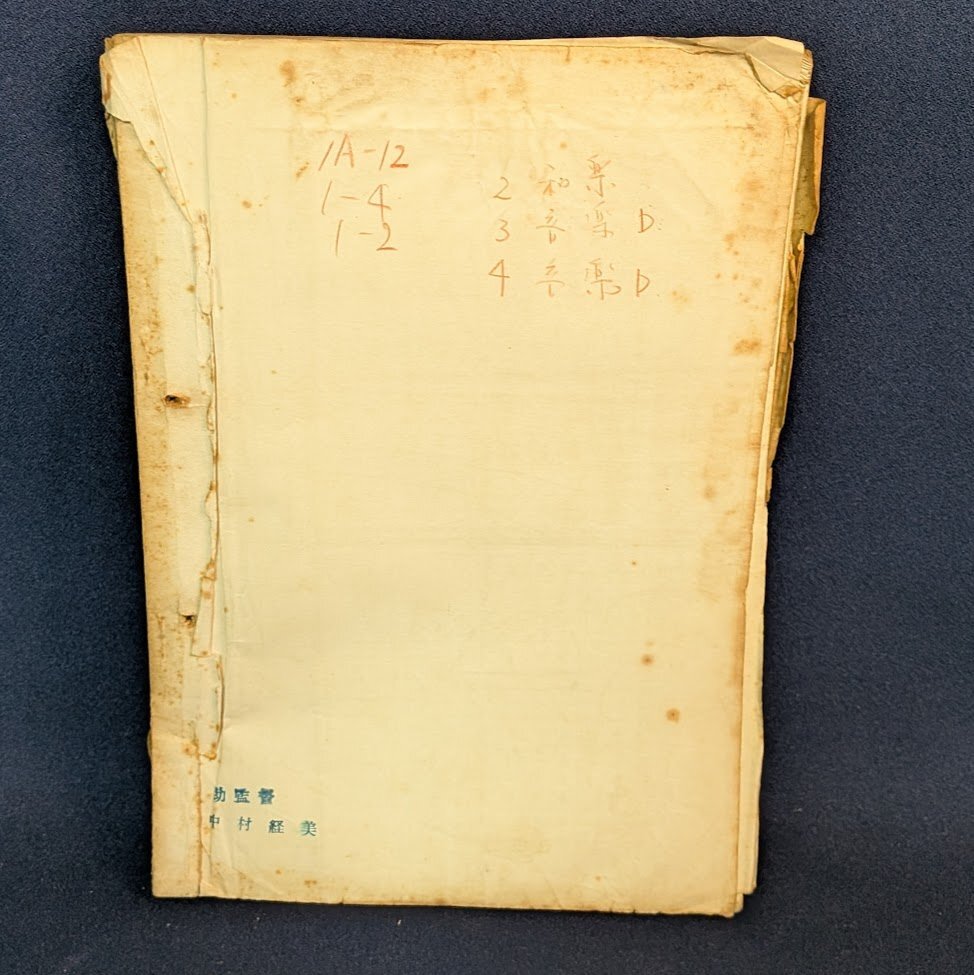 1A-12
1-4
1-2
2 和楽
3 音楽 D.
4 音楽 D.
助監督
中村経美